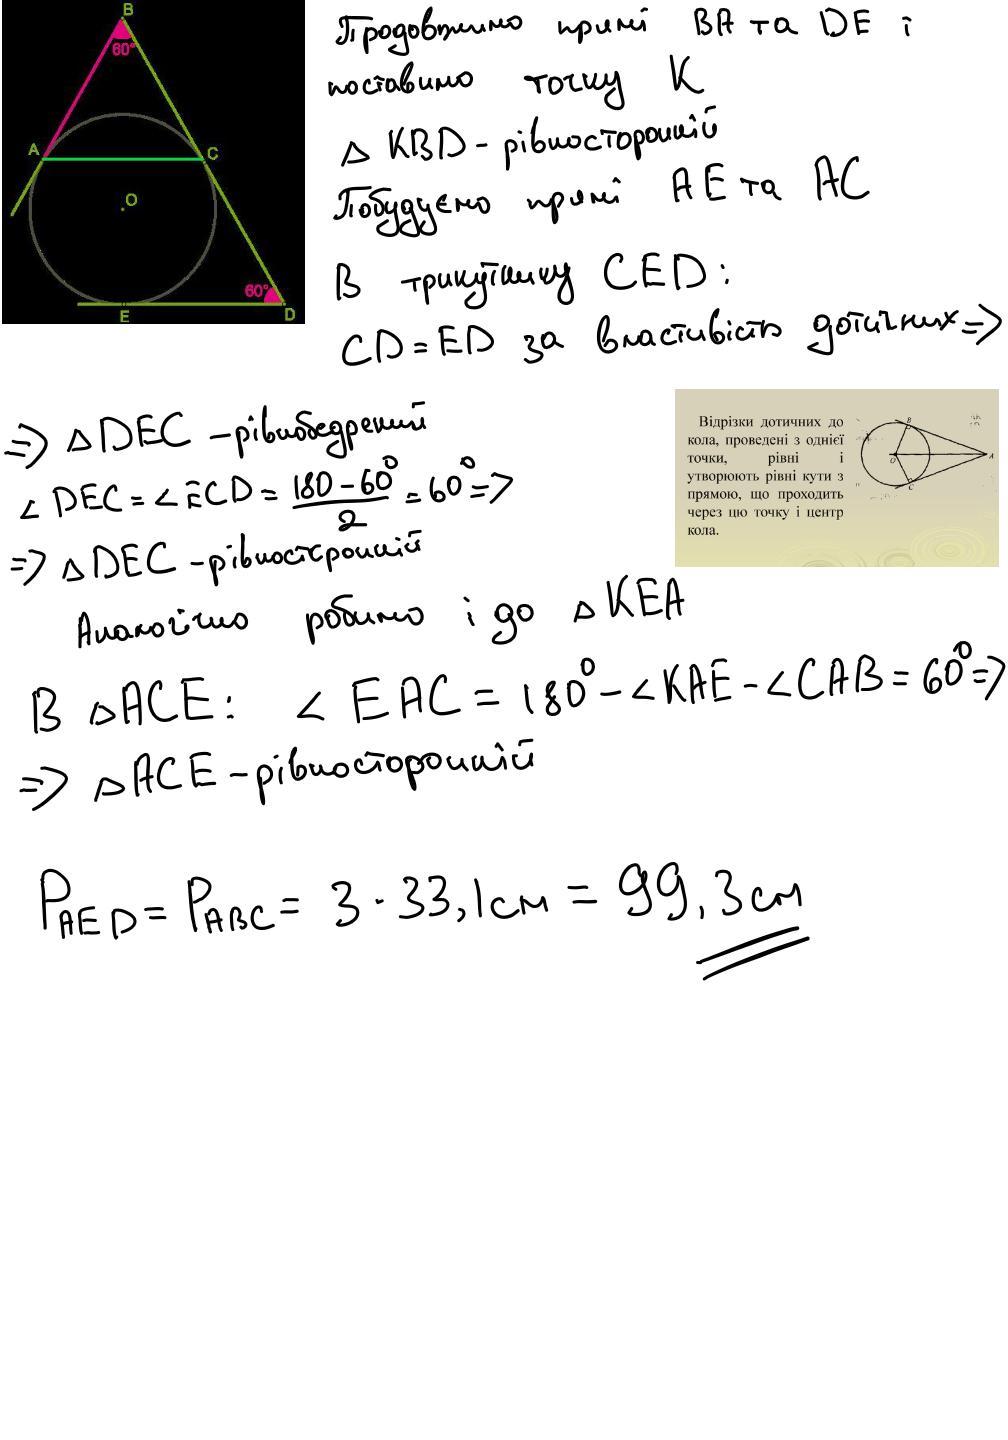 B
60°
A
C
O
60°
E
D
Продовжимо прямі BA та DE і
поставимо точку K
△ KBD - рівносторонній
Побудуємо прямі AE та AC
В трикутнику CED:
CD = ED за властивість дотичних =>
=> △ DEC - рівнобедрений
∠ DEC = ∠ ECD = (180 - 60°)/2 = 60° =>
=> △ DEC - рівносторонній
Відрізки дотичних до
кола, проведені з однієї
точки, рівні і
утворюють рівні кути з
прямою, що проходить
через цю точку і центр
кола.
B
O
A
C
Аналогічно робимо і до △ KEA
В △ ACE: ∠ EAC = 180° - ∠ KAE - ∠ CAB = 60° =>
=> △ ACE - рівносторонній
P AED = P ABC = 3 · 33,1 см = 99,3 см